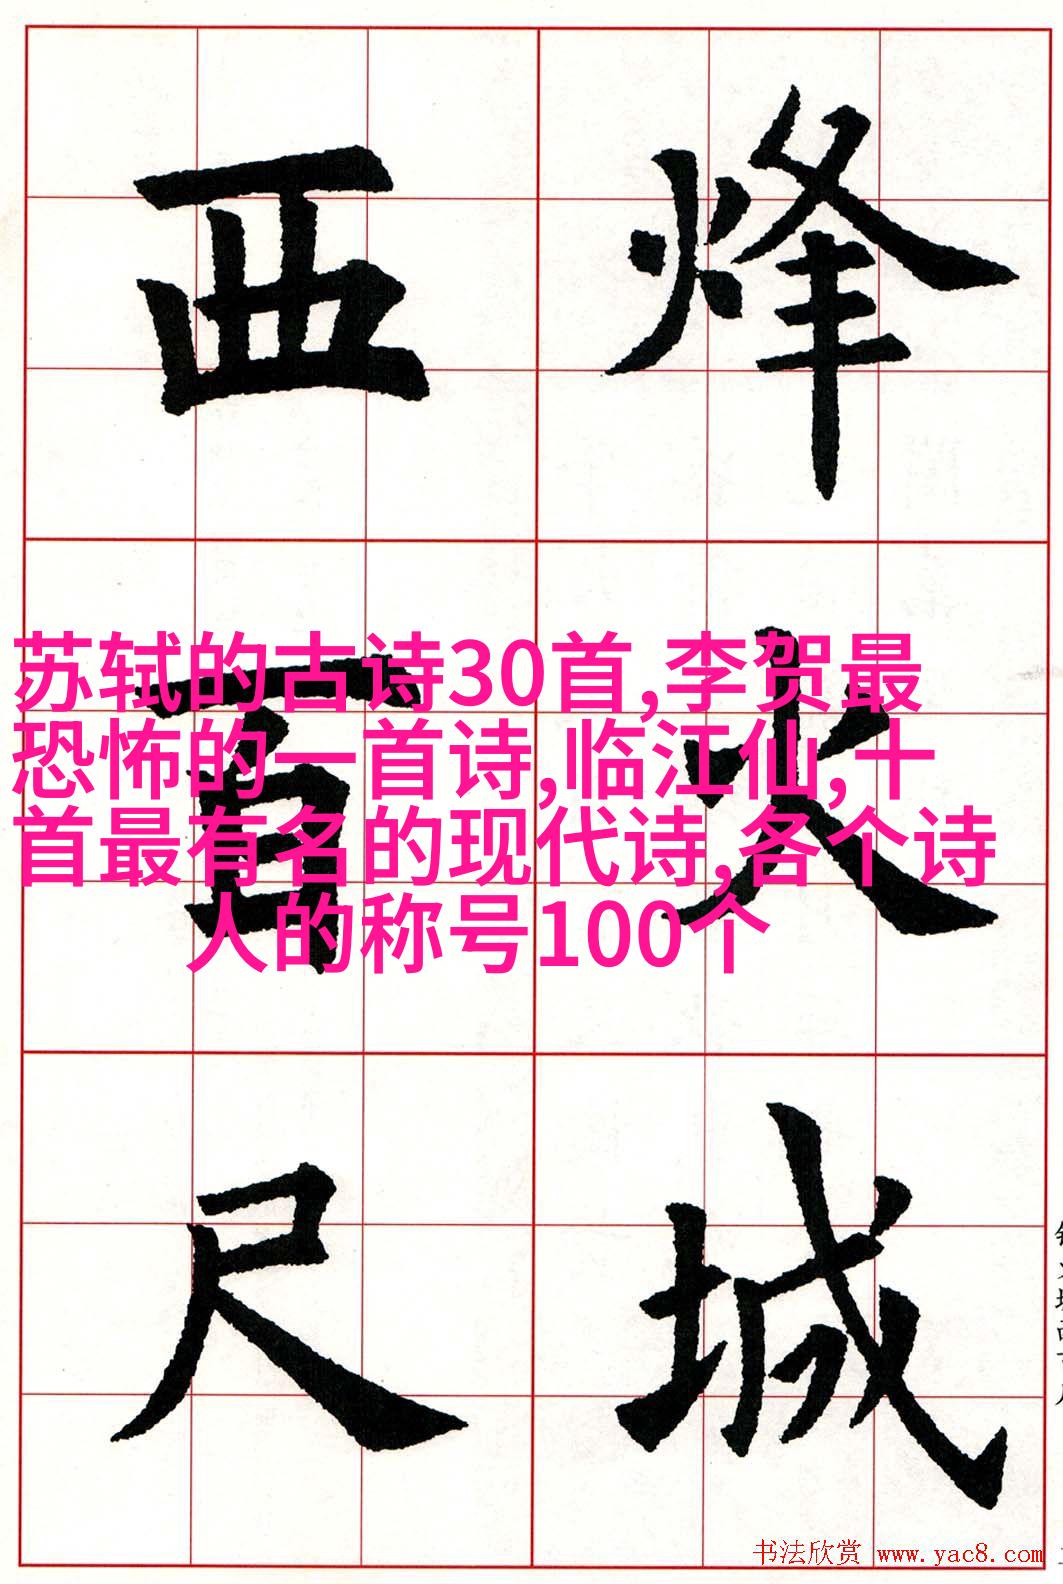 烽火城
西百尺
苏轼的古诗30首,李贺最
恐怖的一首诗,临江仙,十
首最有名的现代诗,各个诗
人的称号100个
书法欣赏 www.yac8.com